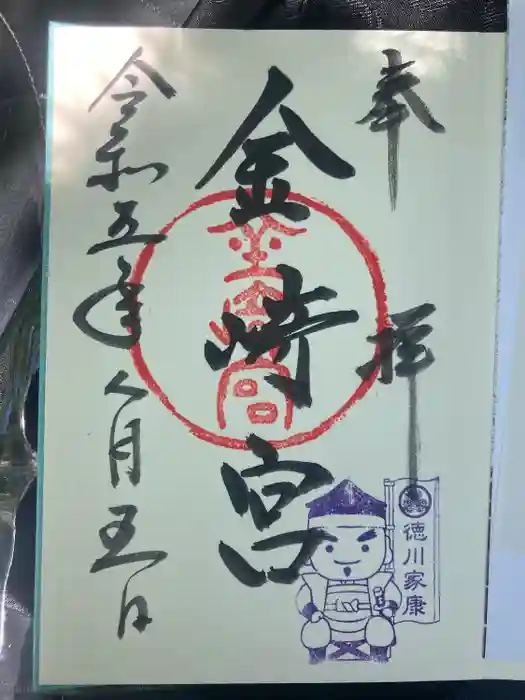 奉拝
金崎宮
令和五年八月五日
徳川家康